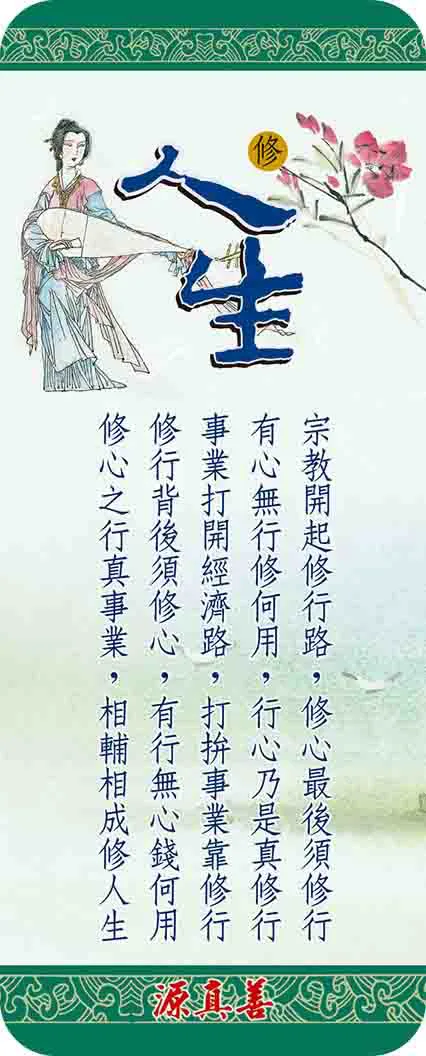 修
人生
宗教開起修行路，修心最後須修行
有心無行修何用，行心乃是真修行
事業打開經濟路，打拚事業靠修行
修行背後須修心，有行無心錢何用
修心之行真事業，相輔相成修人生
源真善